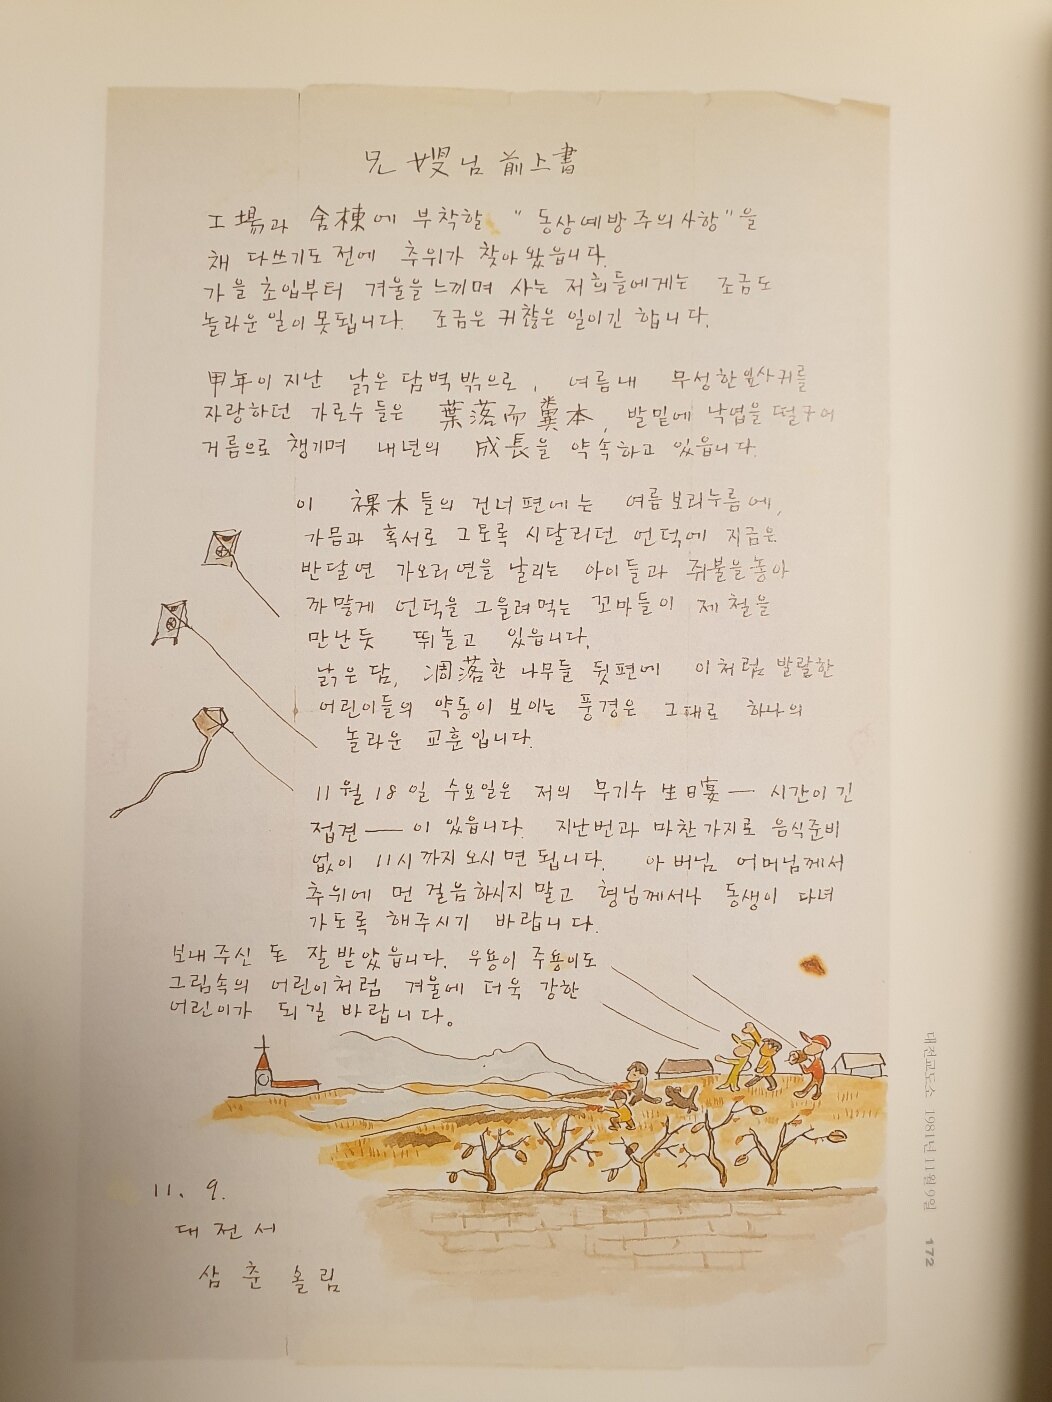 兄嫂님 前上書
工場과 舍棟에 부착할 "동상예방주의사항"을
채 다쓰기도 전에 추위가 찾아왔읍니다.
가을 초입부터 겨울을 느끼며 사는 저희들에게는 조금도
놀라운 일이 못됩니다. 조금은 귀찮은 일이긴 합니다.
甲年이 지난 낡은 담벽 밖으로, 여름내 무성한 잎사귀를
자랑하던 가로수들은 葉落而糞本, 발밑에 낙엽을 떨구어
거름으로 챙기며 내년의 成長을 약속하고 있읍니다.
이 裸木들의 건너편에는 여름 보리누름에,
가뭄과 혹서로 그토록 시달리던 언덕에 지금은
반달연 가오리연을 날리는 아이들과 쥐불을 놓아
까맣게 언덕을 그을려먹는 꼬마들이 제철을
만난듯 뛰놀고 있읍니다.
낡은 담, 凋落한 나무들 뒷편에 이처럼 발랄한
어린이들의 약동이 보이는 풍경은 그대로 하나의
놀라운 교훈입니다.
11월 18일 수요일은 저의 무기수 生日宴 — 시간이 긴
접견 — 이 있읍니다. 지난번과 마찬가지로 음식준비
없이 11시까지 오시면 됩니다. 아버님 어머님께서
추위에 먼 걸음하시지 말고 형님께서나 동생이 다녀
가도록 해주시기 바랍니다.
보내주신 돈 잘 받았읍니다. 우용이 주용이도
그림속의 어린이처럼 겨울에 더욱 강한
어린이가 되길 바랍니다.
11. 9.
대전서
삼촌 올림
대전교도소 1981년 11월 9일 172